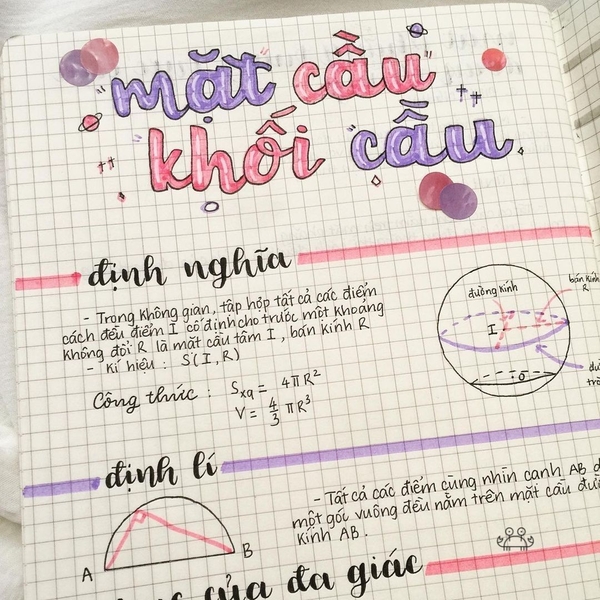 mặt cầu
khối cầu
định nghĩa
- Trong không gian, tập hợp tất cả các điểm
cách đều điểm I cố định cho trước một khoảng
không đổi R là mặt cầu tâm I, bán kính R
- Kí hiệu : S(I,R)
Công thức :
Sxq = 4πR²
V = 4/3 πR³
đường kính
bán kính
R
I
O
định lí
- Tất cả các điểm cùng nhìn cạnh AB
một góc vuông đều nằm trên mặt cầu
kính AB.
A
B
của đa giác